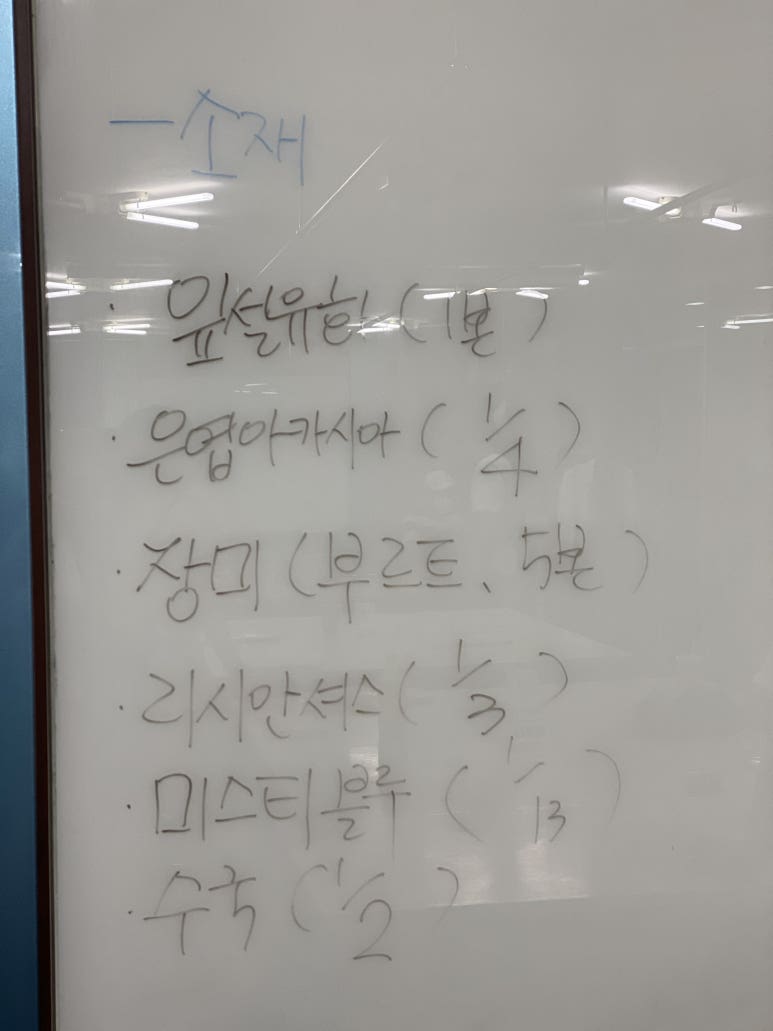 - 소재
· 잎설유화 (1본)
· 은엽아카시아 (1/4)
· 장미 (부르트、5본)
· 리시안셔스 (1/3)
· 미스티블루 (1/13)
· 수국 (1/2)